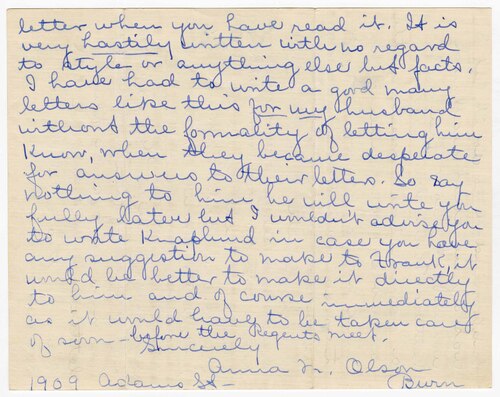 letter when you have read it. It is
very hastily written with no regard
to style or anything else but facts.
I have had to write a good many
letters like this for my husband
without the formality of letting him
know, when they became desperate
for answers to their letters. So say
nothing to him he will write you
fully later but I wouldn't advise you
to write Knaplund in case you have
any suggestion to make to Frank, it
would be better to make it directly
to him and of course immediately
as it would have to be taken care
of soon - before the Regents meet.
Sincerely
Anna M. Olson
1909 Adams St - Burn